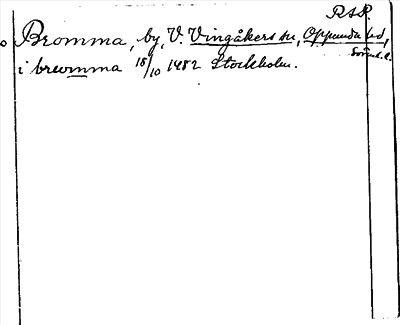 RAP.
Bromma, by, V. Vingåkers sn, Oppunda hd,
Sörml. l.
i breommma 18/10 1482 Stockholm.